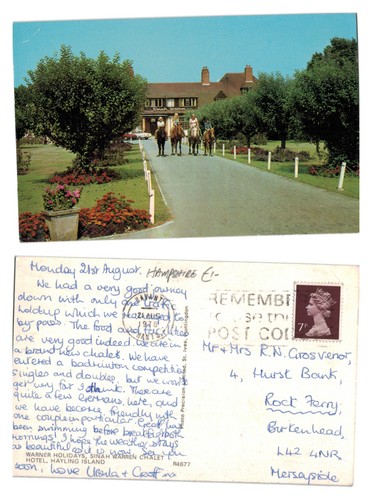 Monday 21st August.
HAMPSHIRE £1-
We had a very good journey
down with only one traffic
holdup which we managed to
by-pass. The food and facilities
are very good indeed. We are in
a brand new chalet. We have
entered a badminton competition,
singles and doubles, but we won't
get very far I think. There are
quite a few Germans here, and
we have become friendly with
one couple in particular. Geoff has
been swimming before breakfast both
mornings! I hope the weather stays
as beautiful
soon, Love Ursula & Geoff
WARNER HOLIDAYS, SINAH WARREN CHALET
HOTEL, HAYLING ISLAND
R4877
HAVANT
21 AUG
1978
HANTS
REMEMBER
to use the
POST CODE
7P
Mr & Mrs R.N. Grosvenor,
4, Hurst Bank,
Rock Ferry,
Birkenhead,
L42 4NR
Merseyside